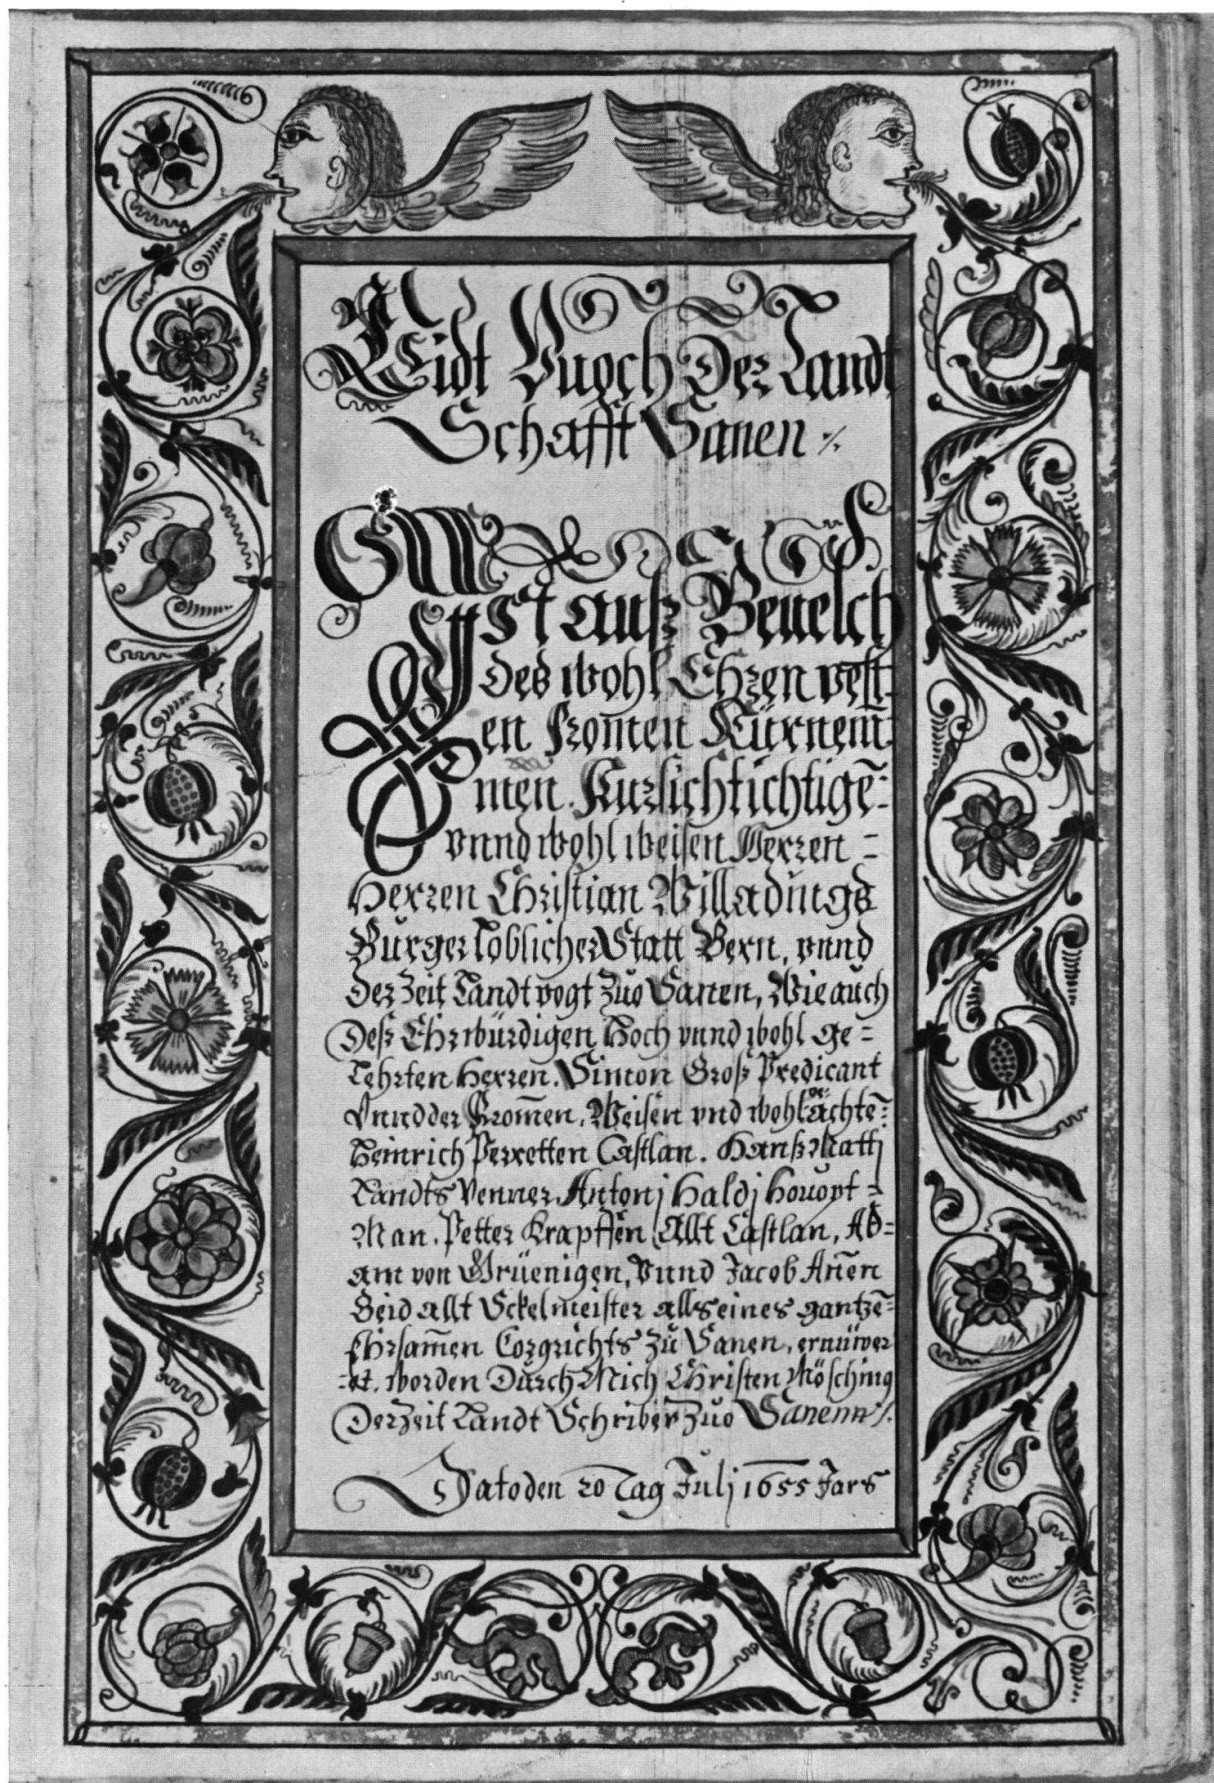 Eidt Buoch Der Landt
Schafft Sanen ·/.
Ist auß Beuelch
des wohl Ehren vest-
en Fromen Fürnem̄
men. Fürsichtichtigē-
vnnd wohl weisen Herren -
Herren Christian Willadings
Burger Loblicher Statt Bern, vnnd
der Zeit Landt vogt Zuo Sanen, Wie auch
Deß Ehrwürdigen Hoch vnnd wohl ge=
Lehrten Herren. Simon Groß Predicant
Vnnd der From̄en, Weisen vnd wohl
Heinrich Perretten Castlan. Hanß Mattj
Landts Venner, Antonj Haldj Houopt=
Man. Petter Krapffen Allt Castlan, Ad=
am von Grüenigen, Vnnd Jacob Am̄en
Beid allt Seckelmeister alls eines gantzē=
Ehrsam̄en Corgrichts Zů Sanen, ernüwer
=et. worden Durch Mich Christen Mösching
Der Zeit Landt Schriber Zuo Sanenn ·/.
Dato den 20 Tag Julj 1655 Jars